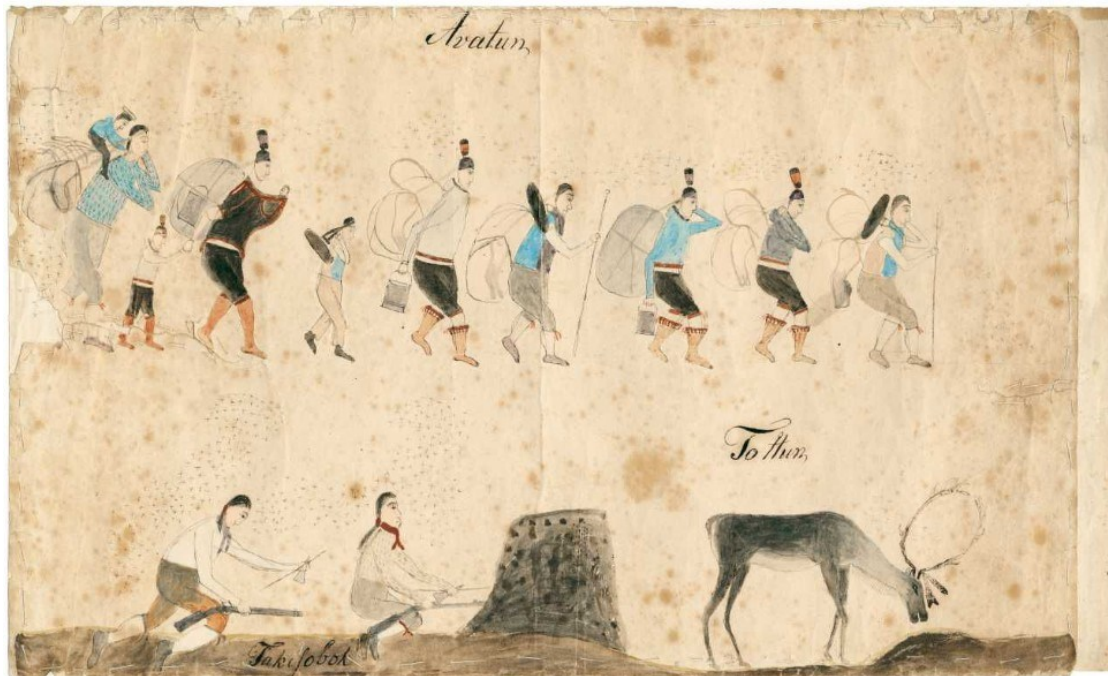 Avatun
Tottun
Takisobok